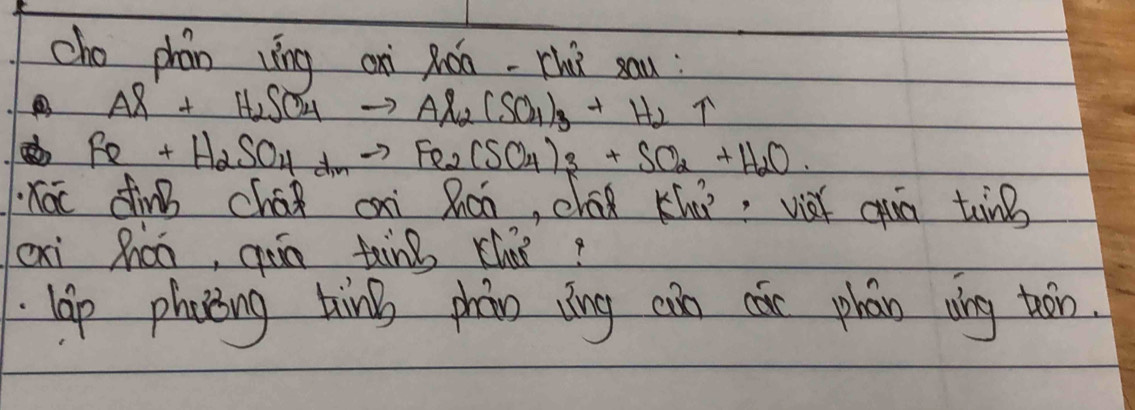 Cho phản ứng oxi hóa - khử sau:
Al + H₂SO₄ → Al₂(SO₄)₃ + H₂ ↑
Fe + H₂SO₄ đn → Fe₂(SO₄)₃ + SO₂ + H₂O.
. Xác định chất oxi hoá, chất khử ; viết quá trình
oxi hoá, quá trình khử ?
. lập phương trình phản ứng của các phản ứng trên.